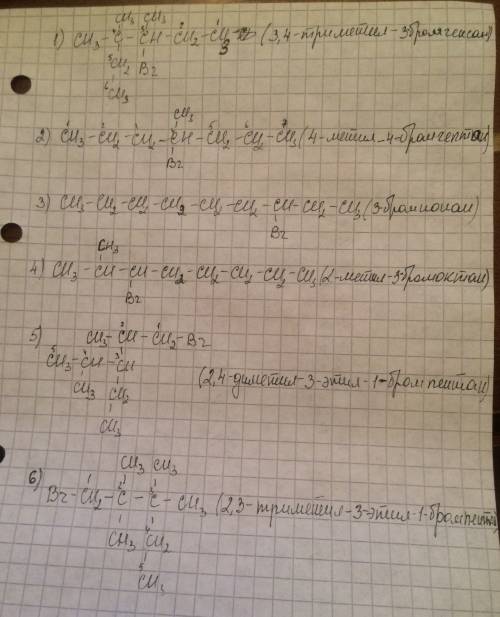 CH₃ CH₃
1) CH₃ - C - CH - CH₂ - CH₃ (3,4-триметил-3бромгексан)
CH₂ Br
CH₃
CH₃
2) CH₃ - CH₂ - CH₂ - CH - CH₂ - CH₂ - CH₃ (4-метил-4-бромгептан)
Br
3) CH₃ - CH₂ - CH₂ - CH₂ - CH₂ - CH₂ - CH - CH₂ - CH₃ (3-бромнонан)
Br
CH₃
4) CH₃ - CH - CH - CH₂ - CH₂ - CH₂ - CH₂ - CH₃ (2-метил-3-бромоктан)
Br
5) CH₃ - CH - CH₂ - Br
CH₃ - CH - CH
CH₃ CH₂ (2,4-диметил-3-этил-1-бромпентан)
CH₃
CH₃ CH₃
6) Br - CH₂ - C - C - CH₃ (2,3-триметил-3-этил-1-бромпентан)
CH₃ CH₂
CH₃